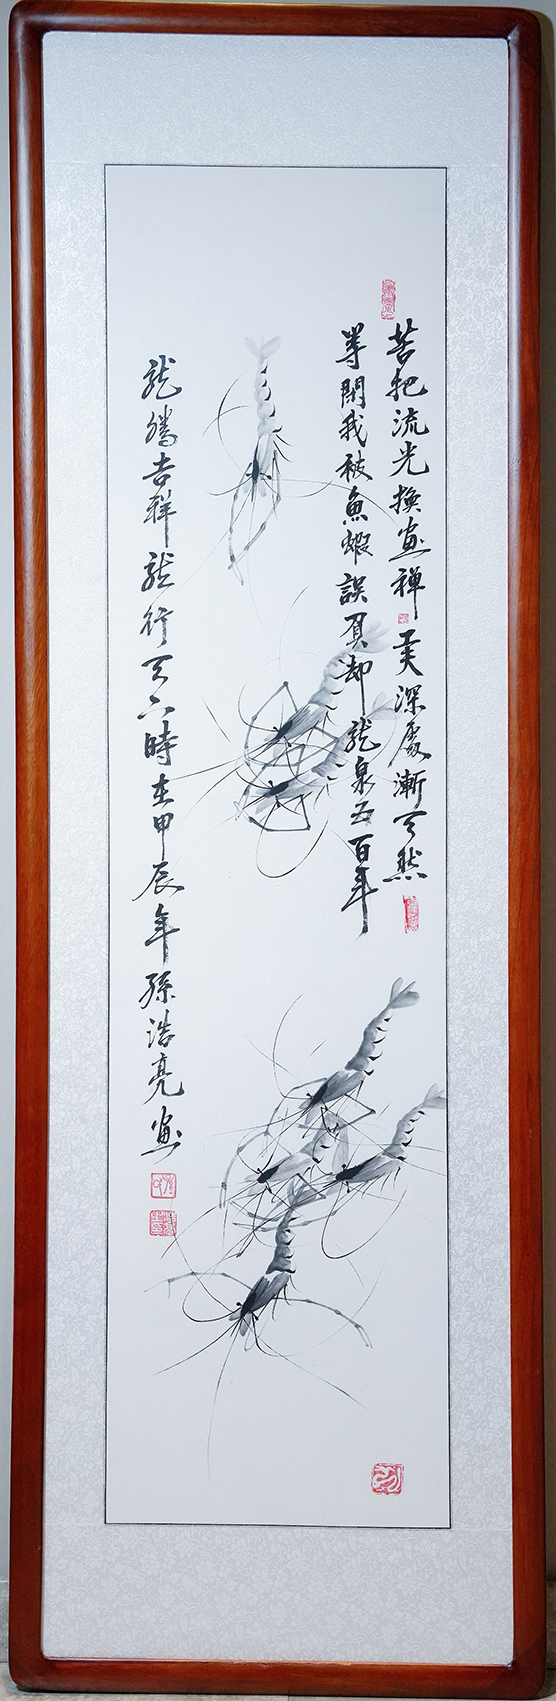 苦把流光換畫禪工夫深處漸天然
等閑我被魚蝦誤負却龍泉五百年
龍騰吉祥龍行天下時在甲辰年孫浩亮畫